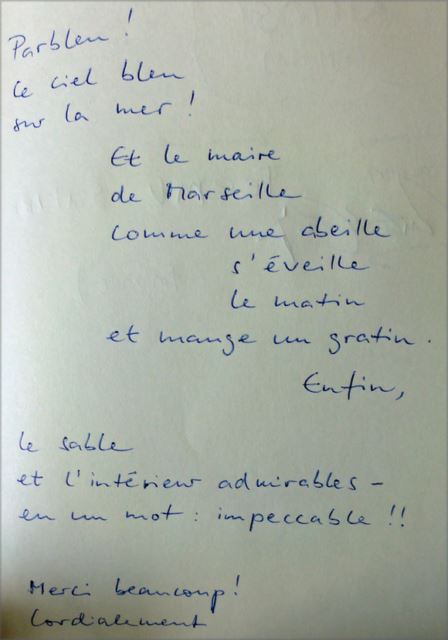 Parbleu !
Le ciel bleu
sur la mer !
Et le maire
de Marseille
comme une abeille
s'éveille
le matin
et mange un gratin.
Enfin,
le sable
et l'intérieur admirables -
en un mot : impeccable !!
Merci beaucoup !
Cordialement